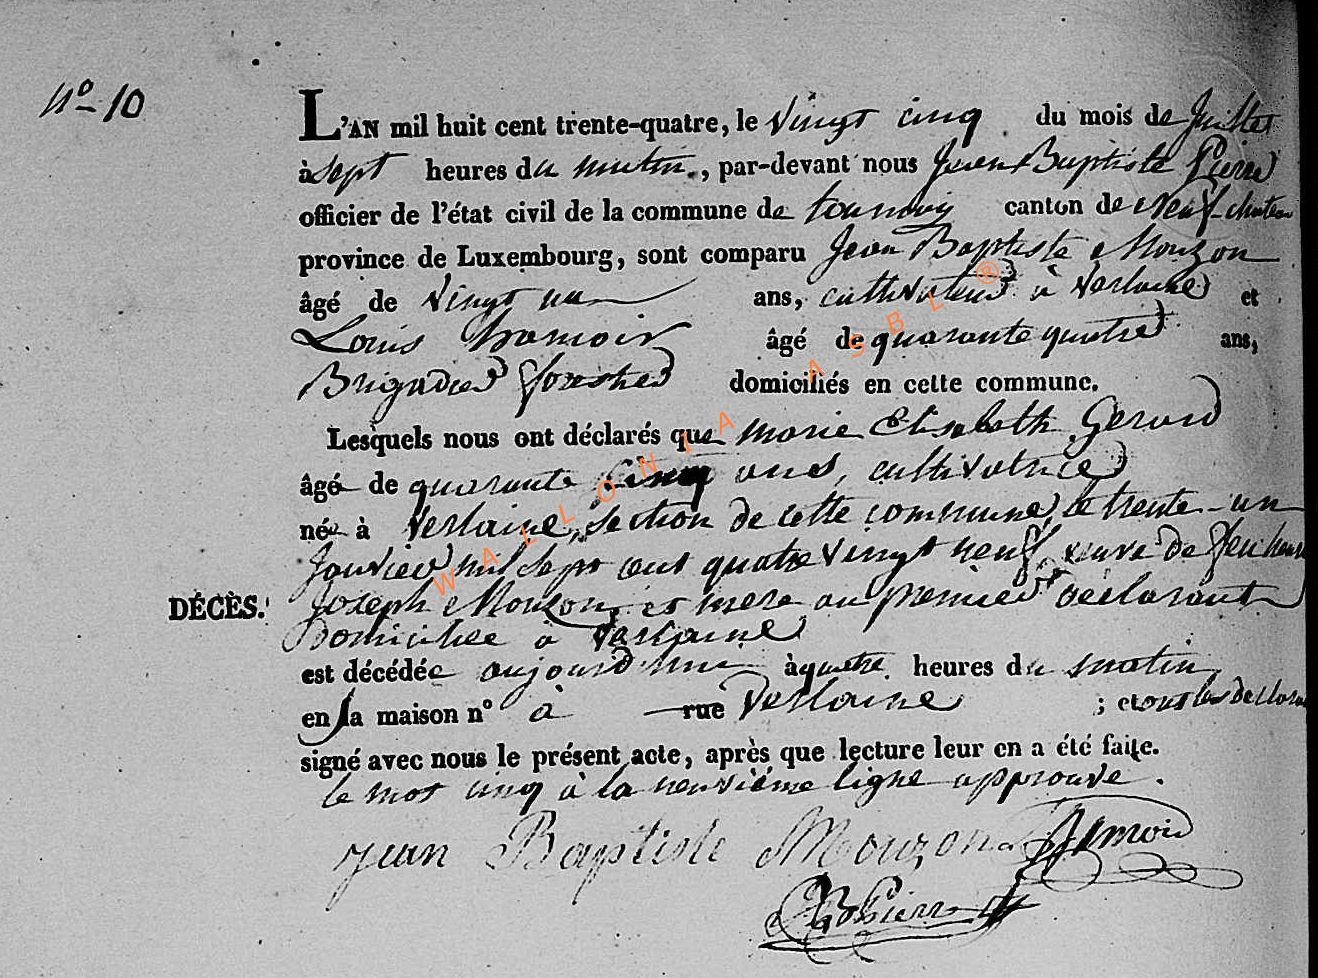 N° 10
L'AN mil huit cent trente-quatre, le vingt cinq du mois de Juillet
à sept heures du matin, par-devant nous Jean Baptiste Pierre
officier de l'état civil de la commune de tournay canton de Neufchateau
province de Luxembourg, sont comparu Jean Baptiste Mouzon
âgé de vingt un ans, cultivateur à Verlaine et
Louis hamoir âgé de quarante quatre ans,
Brigadier forestier domiciliés en cette commune.
Lesquels nous ont déclarés que marie Elisabeth Gerard
âgée de quarante cinq ans, cultivatrice
née à Verlaine, section de cette commune, le trente-un
Janvier mil sept cent quatre vingt neuf, veuve de feu
DÉCÈS. Joseph Mouzon, et mere au premier déclarant
domiciliée à Verlaine
est décédée aujourd'hui à quatre heures du matin
en la maison n° à rue Verlaine ; et ont les
signé avec nous le présent acte, après que lecture leur en a été faite.
le mot cinq à la neuvième ligne approuvé.
Jean Baptiste Mouzon Hamoir
JB Pierre
WALLONIA ASBL ®